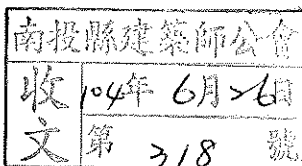 南投縣建築師公會
收文
104年 6月26日
第 318 號